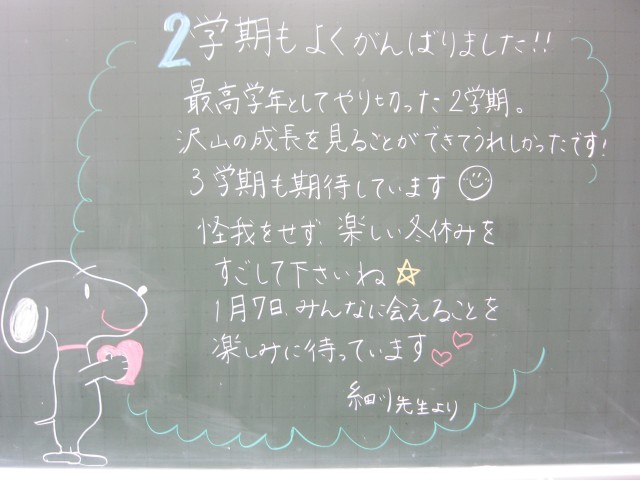 2学期もよくがんばりました!!
最高学年としてやり切った2学期。
沢山の成長を見ることができてうれしかったです!
3学期も期待しています
怪我をせず、楽しい冬休みを
すごして下さいね
1月7日、みんなに会えることを
楽しみに待っています
細川先生より